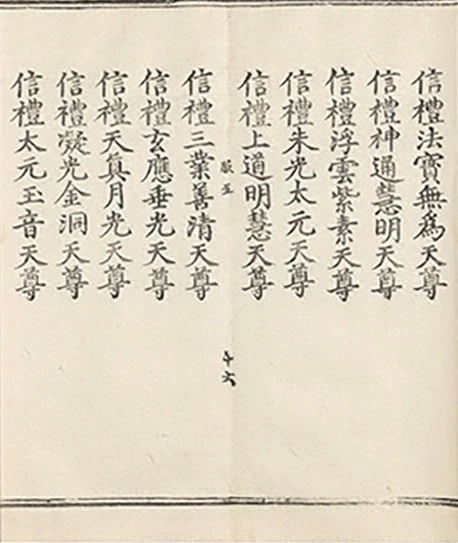 信禮法寶無為天尊
信禮神通慧明天尊
信禮浮雲紫素天尊
信禮朱光太元天尊
信禮上道明慧天尊
十六
信禮三業善清天尊
信禮玄應垂光天尊
信禮天真月光天尊
信禮凝光金洞天尊
信禮太元玉音天尊